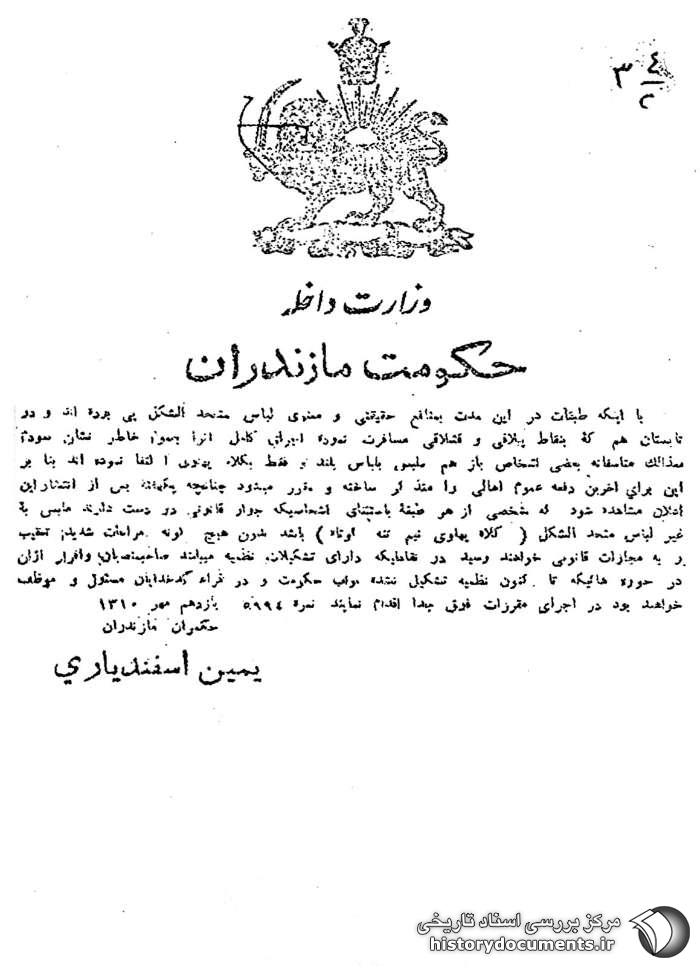 ۳ ٤/۲
وزارت داخله
حکومت مازندران
با اینکه طبقات در این مدت بمنافع حقیقتی و معنوی لباس متحد الشکل پی برده اند و در
تابستان هم که بنقاط ییلاقی و قشلاقی مسافرت نموده اجرای کامل آنرا بعموم خاطر نشان نمودم
معذالک متاسفانه بعضی اشخاص باز هم ملبس بلباس بلند و فقط بکلاه پهلوی ا کتفا نموده اند بنا بر
این برای اخرین دفعه عموم اهالی را متذ کر ساخته و مقرر میشود چنانچه یکهفته پس از انتشار این
اعلان مشاهده شود که شخصی از هر طبقه باستثنای اشخاصیکه جواز قانونی در دست دارند ملبس به
غیر لباس متحد الشکل ( کلاه پهلوی نیم تنه کوتاه ) باشد بدون هیچ گونه مراعات شدید: تعقیب
ر به مجازات قانونی خواهند رسید در نقاطیکه دارای تشکیلات نظمیه میباشد صاحبمنصبان وافراد آژان
در حوزه هائیکه تا کنون نظمیه تشکیل نشده نواب حکومت و در قراء کدخدایان مسئول و موظف
خواهند بود در اجرای مقررات فوق جدا اقدام نمایند نمره ٥٩٩٤ یازدهم مهر ۱۳۱۰
حکمران مازندران
یمین اسفندیاري
مرکز بررسی اسناد تاریخی
historydocuments.ir